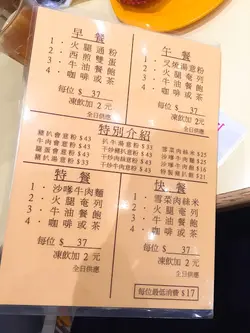 早餐
1．．火腿通粉
2．．西煎雙蛋
3．．牛油餐飽
4．．咖啡或茶
每位 $ 37
凍飲加 2 元
全日供應
午餐
1．．叉燒湯意粉
2．．火腿奄列
3．．牛油餐飽
4．．咖啡或茶
每位 $ 37
凍飲加 2 元
全日供應
特別介紹
豬扒會意粉 $43
牛肉會意粉 $43
雞蛋會意粉 $43
雞扒湯意粉 $43
扒牛湯意粉 $43
干炒豬扒意粉 $43
干炒肉絲意粉 $43
干炒牛肉意粉 $43
雪菜肉絲米 $25
沙嗲牛肉麵 $25
沙嗲牛肉飽 $21
特別豬扒飽 $21
特餐
1．．沙嗲牛肉麵
2．．火腿奄列
3．．牛油餐飽
4．．咖啡或茶
每位 $ 37
凍飲加 2 元
全日供應
快餐
1．．雪菜肉絲米
2．．火腿奄列
3．．牛油餐飽
4．．咖啡或茶
每位 $ 37
凍飲加 2 元
全日供應
每位最低消費 $17